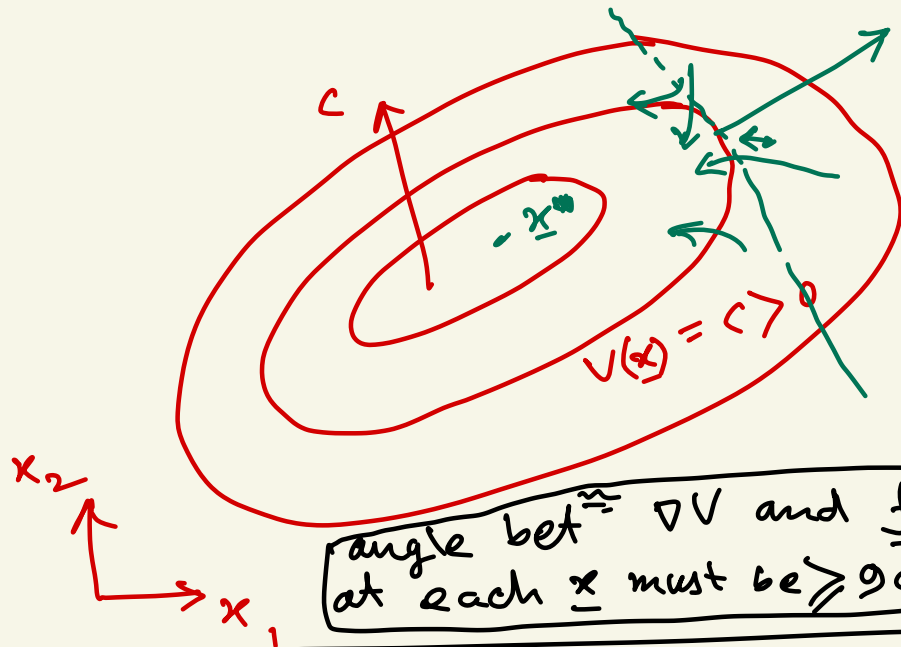 C
x
V(x) = C > 0
x₂
x₁
angle betⁿ ∇V and
at each x must be ≥ 90